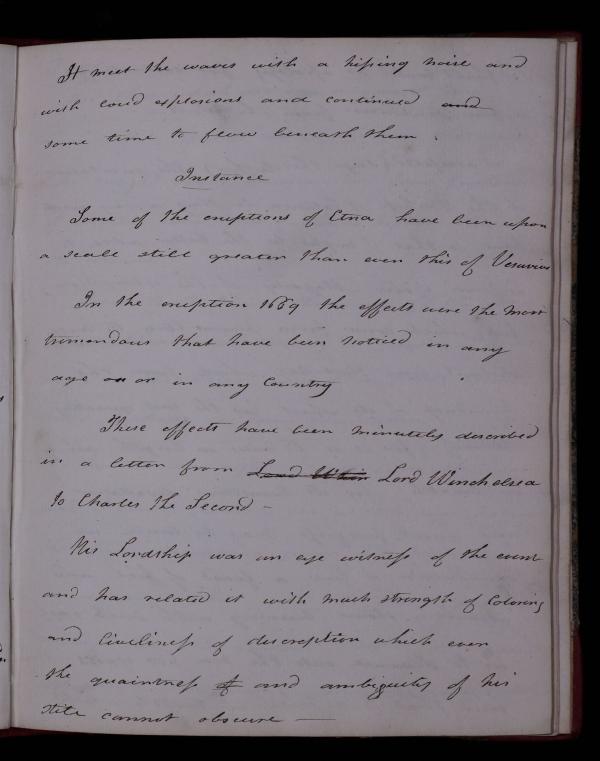 It meet the waves with a hissing noise and
with loud explosions and continued and
some time to flow beneath them.
Instance
Some of the eruptions of Etna have been upon
a scale still greater than even this of Vesuvius
In the eruption 1669 the effects were the most
tremendous that have been noticed in any
age or or in any Country
These effects have been minutely described
in a letter from Lord Lord Winchelsea
to Charles the Second –
His Lordship was an eye witness of the event
and has related it with much strength of Coloring
and liveliness of descreption which even
the quaintness of and ambiguity of his
stile cannot obscure —